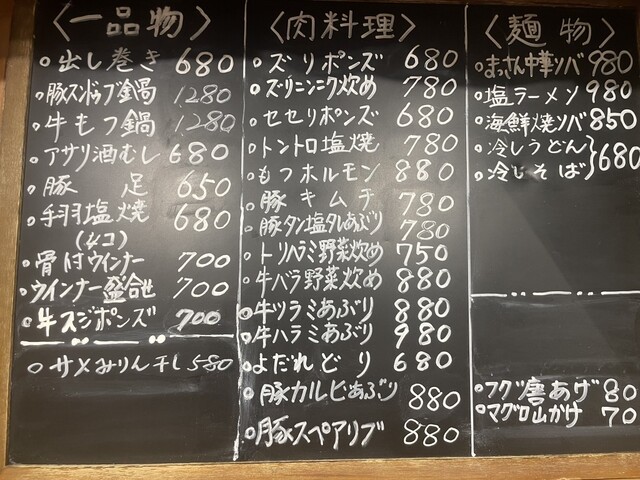 〈一品物〉
○出し巻き 680
○豚スンドゥブ鍋 1280
○牛もつ鍋 1280
○アサリ酒むし 680
○豚 足 650
○手羽塩焼 680
(4コ)
○骨付ウインナー 700
○ウインナー盛合せ 700
○牛スジポンズ 700
○サメみりん干し 580
〈肉料理〉
○ズリポンズ 680
○ズリニンニク炒め 780
○セセリポンズ 680
○トントロ塩焼 780
○もつホルモン 880
○豚キムチ 780
○豚タン塩タレあぶり 780
○トリハラミ野菜炒め 750
○牛バラ野菜炒め 880
○牛ツラミあぶり 880
○牛ハラミあぶり 980
○よだれどり 680
○豚カルビあぶり 880
○豚スペアリブ 880
〈麺物〉
○まっさん中華ソバ 980
○塩ラーメン 980
○海鮮焼ソバ 850
○冷しうどん}680
○冷しそば
○フグ唐あげ 80
○マグロ山かけ 70